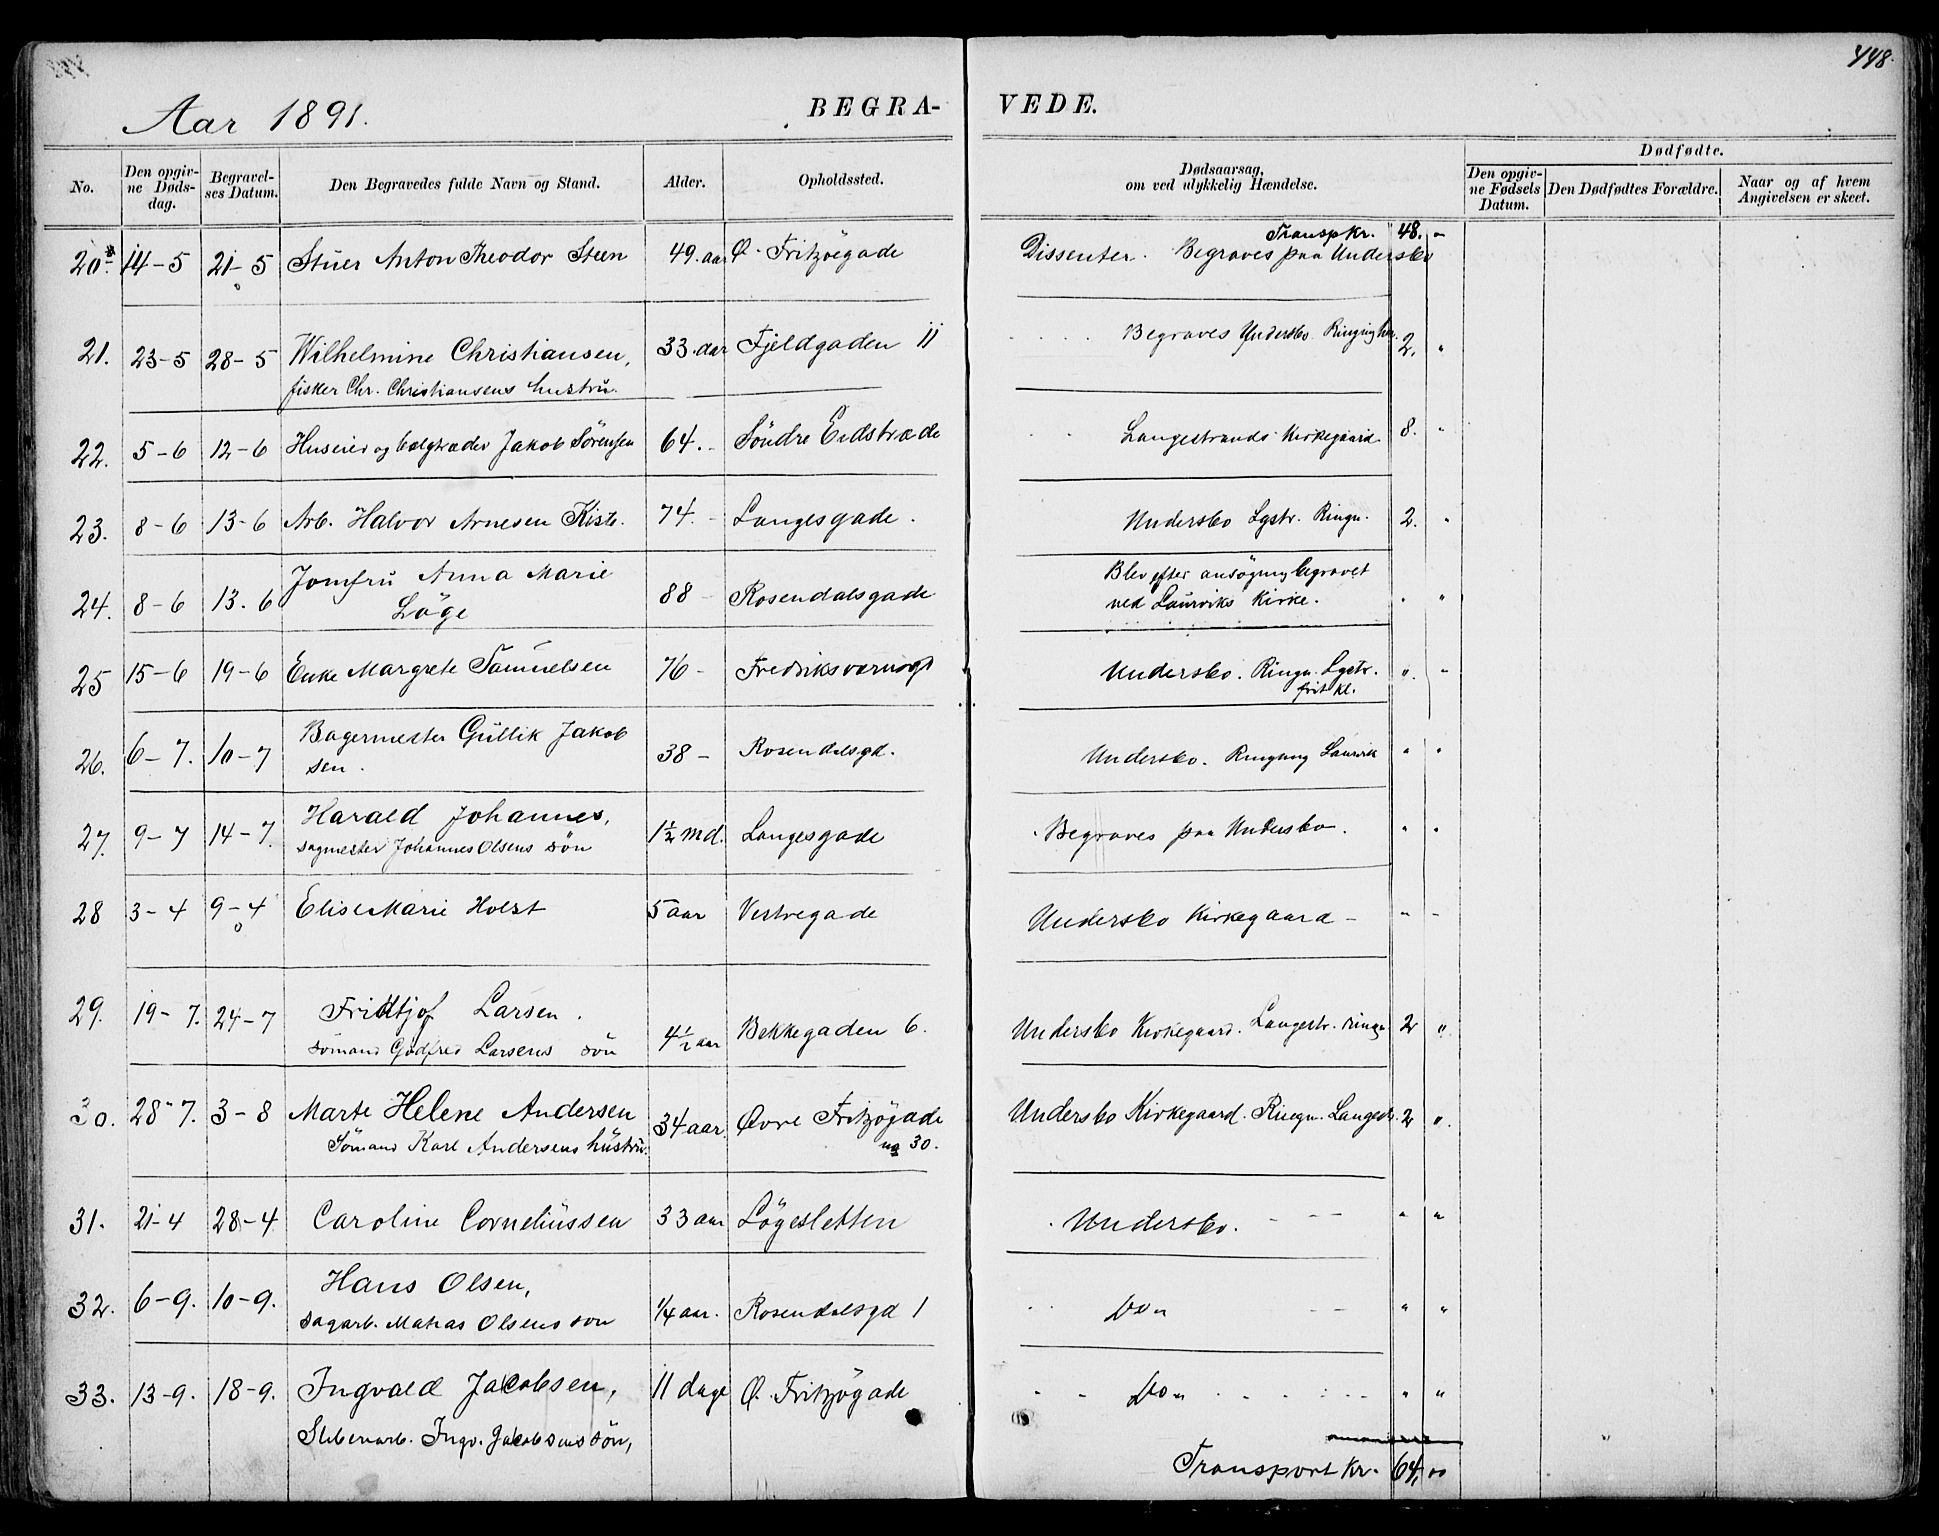 448.
Aar 1891.
BEGRA-
VEDE.
No.
Den opgiv-
ne Døds-
dag.
Begravel-
ses Datum.
Den Begravedes fulde Navn og Stand.
Alder.
Opholdssted.
Dødsaarsag,
om ved ulykkelig Hændelse.
Dødfødte.
Den opgiv-
ne Fødsels
Datum.
Den Dødfødtes Forældre.
Naar og af hvem
Angivelsen er skeet.
Transp kr. 48. "
20. 14-5 21-5 Stuer Anton Theodor Steen 49. aar Ø. Fritzöegade Dissenter. Begraves paa Undersbo
21. 23-5 28-5 Wilhelmine Christiansen, 33. aar Fjeldgaden 11 Begraves Undersbo 2. "
fisker Chr. Christiansens hustru.
22. 5-6 12-6 Huseier og bælgtræder Jakob Sörensen 64.- Söndre Eidstræde Langestrands Kirkegaard 8. "
23. 8-6 13-6 Arb. Halvor Arnesen Kiste. 74.- Langesgade. Undersbo Lgstr. Ringn. 2. "
24. 8-6 13.6 Jomfru Anna Marie
Löge 88 - Rosendalsgade Blev efter ansögning begravet
ved Laurviks Kirke. " "
25 15-6 19-6 Enke Margrete Samuelsen 76- Fredriksværnsgt Undersbo. Ringn. Lgstr. " "
frit kl.
26. 6-7. 10-7 Bagermester Gullik Jakob
sen. 38- Rosendalsgd. Undersbo. Ringning Laurvik " "
27. 9-7 14-7. Harald Johannes, 1½ md. Langesgade Begraves paa Undersbo. " "
sagmester Johannes Olsens sön
28 3-4 9-4 Elise Marie Holst 5 aar Vestregade Undersbo Kirkegaard - " "
29. 19-7. 24-7 Fridtjof Larsen. 4½ aar Bekkegaden 6. Undersbo Kirkegaard. Langestr. Ringn 2 "
sömand Godfred Larsens sön
30. 28-7. 3-8 Marte Helene Andersen 34 aar. Øvre Fritzögade Undersbo Kirkegaard. Ringn. Langestr. 2 "
Sömand Karl Andersens hustru. no 30.
31. 21-4 28-4 Caroline Corneliussen 33 aar Lögesletten Undersbo. " "
32. 6-9. 10-9. Hans Olsen, ¼ aar. Rosendalsgd 1 Do " "
sagarb. Matias Olsens sön
33. 13-9. 18-9. Ingvald Jacobsen, 11 dage Ø. Fritzögade Do " "
Sliberiarb. Ingv. Jacobsens sön,
Transport kr. 64,00